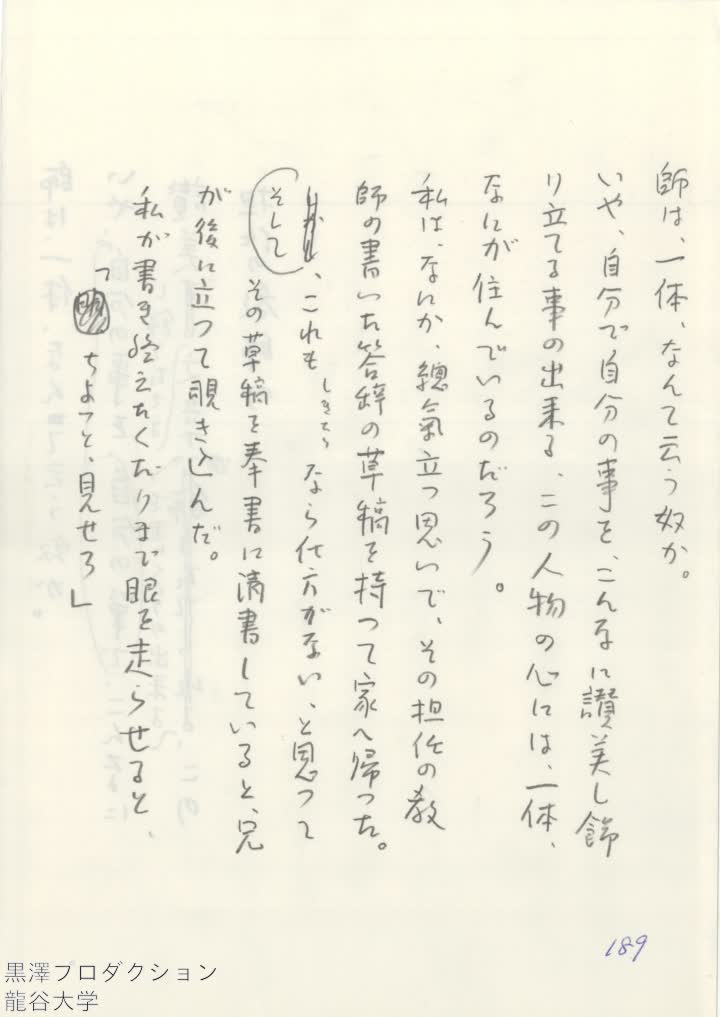 師は、一体、なんて云う奴か。
いや、自分で自分の事を、こんなに讃美し飾
り立てる事の出来る、この人物の心には、一体、
なにが住んでいるのだろう。
私は、なにか、總氣立つ思いで、その担任の教
師の書いた答辞の草稿を持つて家へ帰つた。
、これもしきたりなら仕方がない、と思つて
そして
その草稿を奉書に清書していると、兄
が後に立つて覗き込んだ。
私が書き終えたくだりまで眼を走らせると、
「ちよつと、見せろ」
189
黒澤プロダクション
龍谷大学